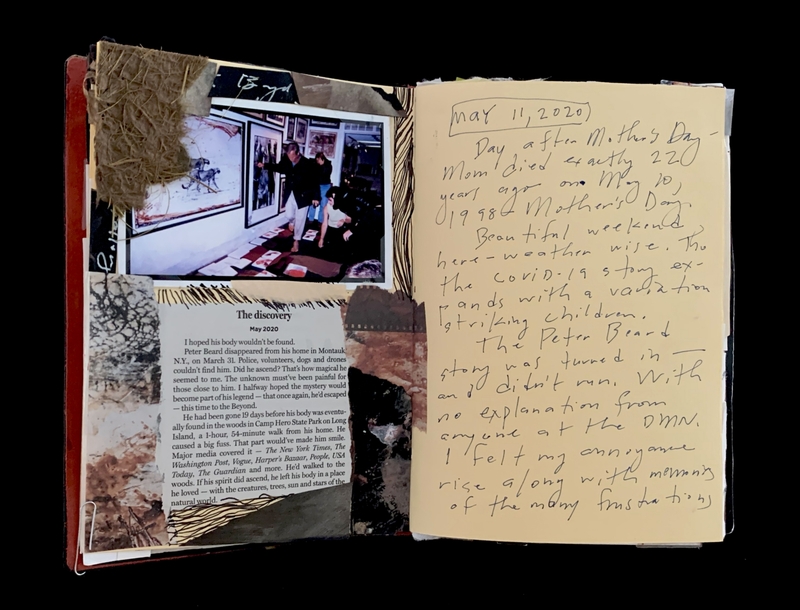 The discovery
May 2020
I hoped his body wouldn't be found.
Peter Beard disappeared from his home in Montauk
N.Y., on March 31. Police, volunteers, dogs and drones
couldn't find him. Did he ascend? That's how magical he
seemed to me. The unknown must've been painful for
those close to him. I halfway hoped the mystery would
become part of his legend — that once again, he'd escaped
— this time to the Beyond.
He had been gone 19 days before his body was eventu-
ally found in the woods in Camp Hero State Park on Long
Island, a 1-hour, 54-minute walk from his home. He
caused a big fuss. That part would've made him smile.
Major media covered it — The New York Times, The
Washington Post, Vogue, Harper's Bazaar, People, USA
Today, The Guardian and more. He'd walked to the
woods. If his spirit did ascend, he left his body in a place
he loved — with the creatures, trees, sun and stars of the
natural world.
MAY 11, 2020
Day after Mother's Day –
Mom died exactly 22
years ago on May 10,
1998 – Mother's Day.
Beautiful weekend
here – weather wise. Tho
the COVID-19 story ex-
pands with a variation
striking children.
The Peter Beard
story was turned in —
and didn't run. With
no explanation from
anyone at the DMN.
I felt my annoyance
rise along with memories
of the many frustrations